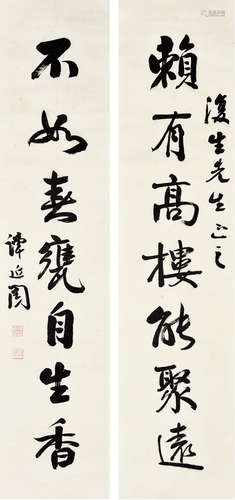 賴有高樓能聚遠
復生先生正之
不如春甕自生香
譚延闓